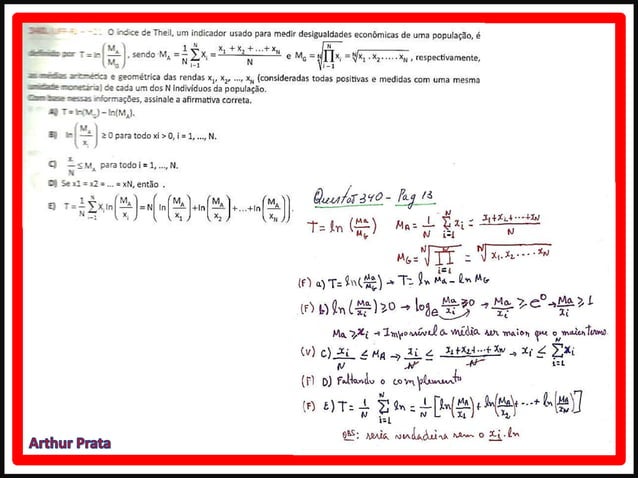 340. O índice de Theil, um indicador usado para medir desigualdades econômicas de uma população, é
definido por T = ln (M_A / M_G), sendo M_A = 1/N ∑_{i=1}^{N} x_i = (x_1 + x_2 + ... + x_N) / N e M_G = ᴺ√(∏_{i=1}^{N} x_i) = ᴺ√(x_1 . x_2 ..... x_N), respectivamente,
as médias aritmética e geométrica das rendas x_1, x_2, ..., x_N (consideradas todas positivas e medidas com uma mesma
unidade monetária) de cada um dos N indivíduos da população.
Com base nessas informações, assinale a afirmativa correta.
A) T = ln(M_G) – ln(M_A).
B) ln (M_A / x_i) ≥ 0 para todo xi > 0, i = 1, ..., N.
C) x_i / N ≤ M_A para todo i = 1, ..., N.
D) Se x1 = x2 = ... = xN, então .
E) T = 1/N ∑_{i=1}^{N} X_i ln (M_A / x_i) = N [ln (M_A / x_1) + ln (M_A / x_2) + ... + ln (M_A / x_N)].
Questão 340 - Pag 13
T = ln (MA / MG) MA = 1/N ∑_{i=1}^{N} xi = (x1+x2+...+xN) / N
MG = ᴺ√(∏_{i=1}^{N}) = ᴺ√(x1. x2. ... . xN)
(F) a) T = ln(MA/MG) → T = ln MA - ln MG
(F) b) ln (MA/xi) ≥ 0 → log_e MA/xi ≥ 0 → MA/xi ≥ e⁰ → MA/xi ≥ 1
MA ≥ xi → Impossível a média ser maior que o maior termo
(V) c) xi/N ≤ MA → xi/N ≤ (x1+x2+...+xN)/N → xi ≤ ∑_{i=1}^{N} xi
(F) D) Faltando o complemento
(F) E) T = 1/N ∑_{i=1}^{N} ln = 1/N [ln(MA/x1) + ln(MA/x2) + ... + ln(MA/xN)]
OBS: seria verdadeira sem o xi.ln
Arthur Prata